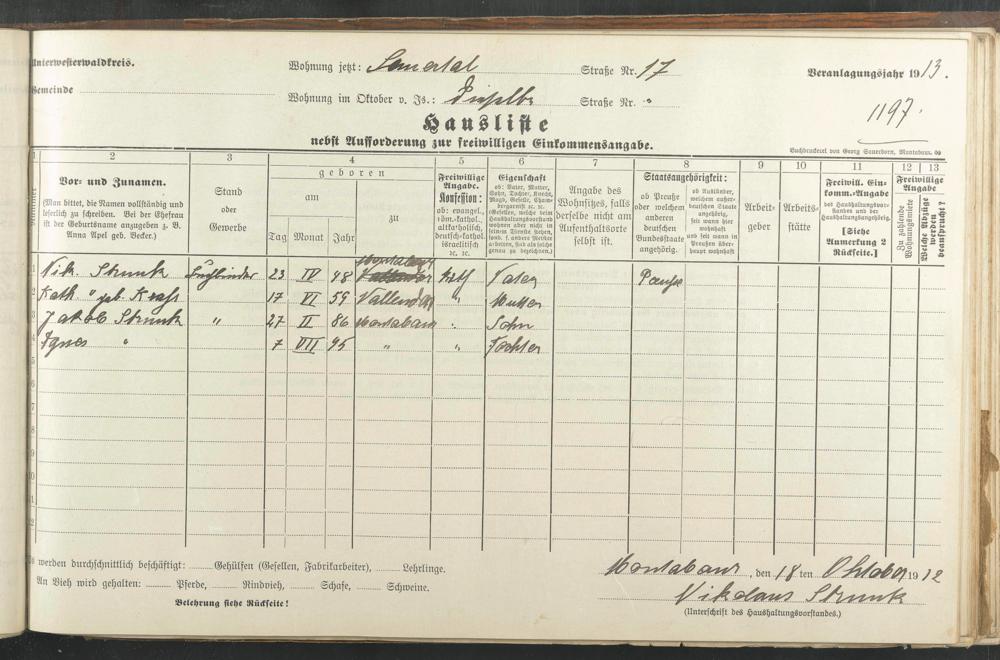 Unterwesterwaldkreis.
Wohnung jetzt: Sauertal Straße Nr. 17
Veranlagungsjahr 1913.
Gemeinde
Wohnung im Oktober v. Js.: Dieselbe Straße Nr. "
1197.
Hausliste
nebst Aufforderung zur freiwilligen Einkommensangabe.
Buchdruckerei von Georg Sauerborn, Montabaur.
1 2 3 4 5 6 7 8 9 10 11 12 13
Nummer
Vor- und Zunamen.
(Man bittet, die Namen vollständig und
leserlich zu schreiben. Bei der Ehefrau
ist der Geburtsname anzugeben z. B.
Anna Apel geb. Becker.)
Stand
oder
Gewerbe
geboren
am
zu
Tag Monat Jahr
Freiwillige
Angabe.
Konfession:
ob: evangel.,
röm.-kathol.,
altkatholisch,
deutsch-kathol.
israelitisch
ec. ec.
Eigenschaft
ob: Vater, Mutter,
Sohn, Tochter, Knecht,
Magd, Geselle, Cham-
bregarnist ec. ec.
(Gesellen, welche beim
Haushaltungsvorstand
wohnen aber nicht in
seinem Dienste stehen,
sowie andere Mieter
arbeiten, sind als solche
genau zu bezeichnen.)
Angabe des
Wohnsitzes, falls
derselbe nicht am
Aufenthaltsorte
selbst ist.
Staatsangehörigkeit:
ob Preuße
oder welchem
anderen
deutschen
Bundesstaate
angehörig.
ob Ausländer,
welchem außer-
deutschen Staate
angehörig,
seit wann hier
wohnhaft
und seit wann in
Preußen über-
haupt wohnhaft
Arbeit-
geber
Arbeits-
stätte
Freiwill. Ein-
komm.-Angabe
des Haushaltungsvor-
standes und der
Haushaltungsangehörig.
[Siehe
Anmerkung 2
Rückseite.]
Freiwillige
Angabe
Zu zahlende
Wohnungsmiete
Welche Abzüge
werden
beansprucht?
Montabaur
1 Nik. Strunk 23 IV 48 Kath Vater Preuße
2 Kath. " geb. Krass 17 VI 59 Vallendar " Mutter
3 Jakob Strunk " 27 II 86 Montabaur " Sohn
4 Agnes " 7 VII 95 " " Tochter
5
6
7
8
9
10
11
12
Es werden durchschnittlich beschäftigt: Gehülfen (Gesellen, Fabrikarbeiter), Lehrlinge.
An Vieh wird gehalten: Pferde, Rindvieh, Schafe, Schweine.
Belehrung siehe Rückseite!
Montabaur, den 18ten Oktober 1912
Nikolaus Strunk
(Unterschrift des Haushaltungsvorstandes.)